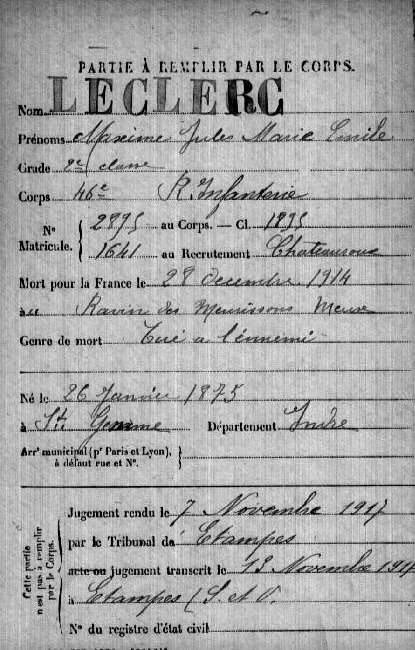 PARTIE À REMPLIR PAR LE CORPS.
Nom LECLERC
Prénoms Maxime Jules Marie Emile
Grade 2e classe
Corps 46e R. Infanterie
N° Matricule. { 2895 au Corps. — Cl. 1895
1641 au Recrutement Chateauroux
Mort pour la France le 28 decembre 1914
à Ravin des Meurissons Meuse
Genre de mort Tué a l'ennemi
Né le 26 Janvier 1875
à Ste Gemme Département Indre
Arrt municipal (pr Paris et Lyon), à défaut rue et N°. }
Cette partie n'est pas à remplir par le Corps.
Jugement rendu le 7 Novembre 1917
par le Tribunal de Etampes
acte ou jugement transcrit le 13 Novembre 1917
à Etampes (S. et O.
N° du registre d'état civil